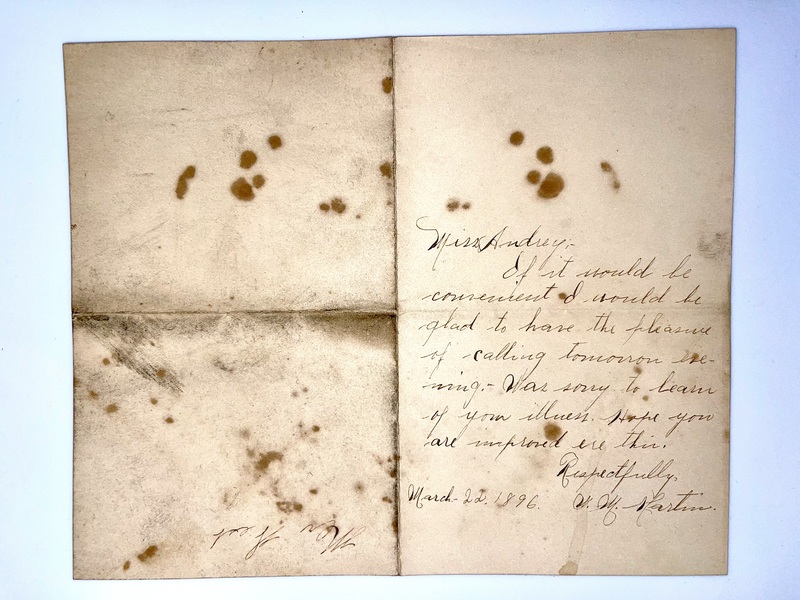 Miss Audrey,-
If it would be
convenient I would be
glad to have the pleasure
of calling tomorrow eve-
ning.- Was sorry to learn
of your illness. Hope you
are improved ere this.
Respectfully,
March 22. 1896. Martin.